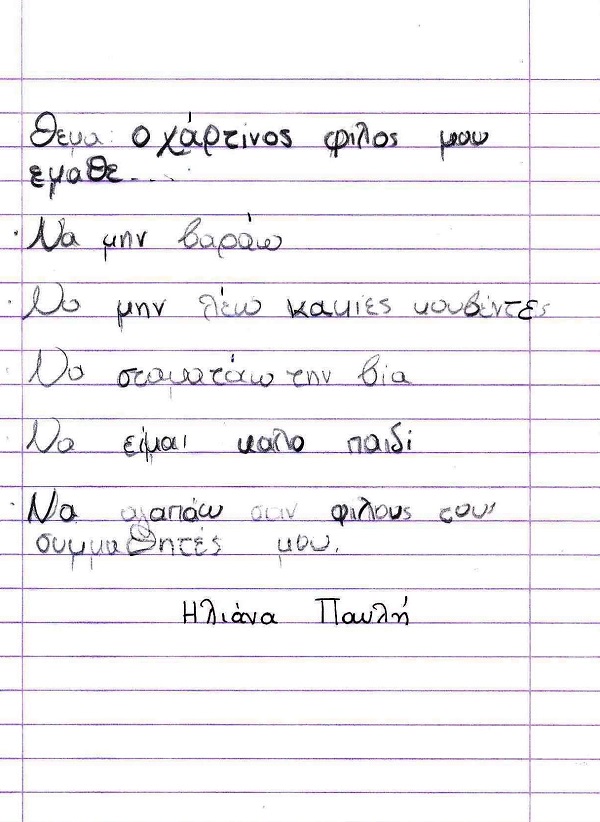 Θεμα: ο χάρτινος φιλος μου
εμαθε....
· Να μην βαράω
· Να μην λέω κακιες κουβέντες
· Να σταματάω την βία
· Να είμαι καλο παιδί
· Να αγαπάω σαν φιλους τους
συμμαθητές μου.
Ηλιάνα Παυλή